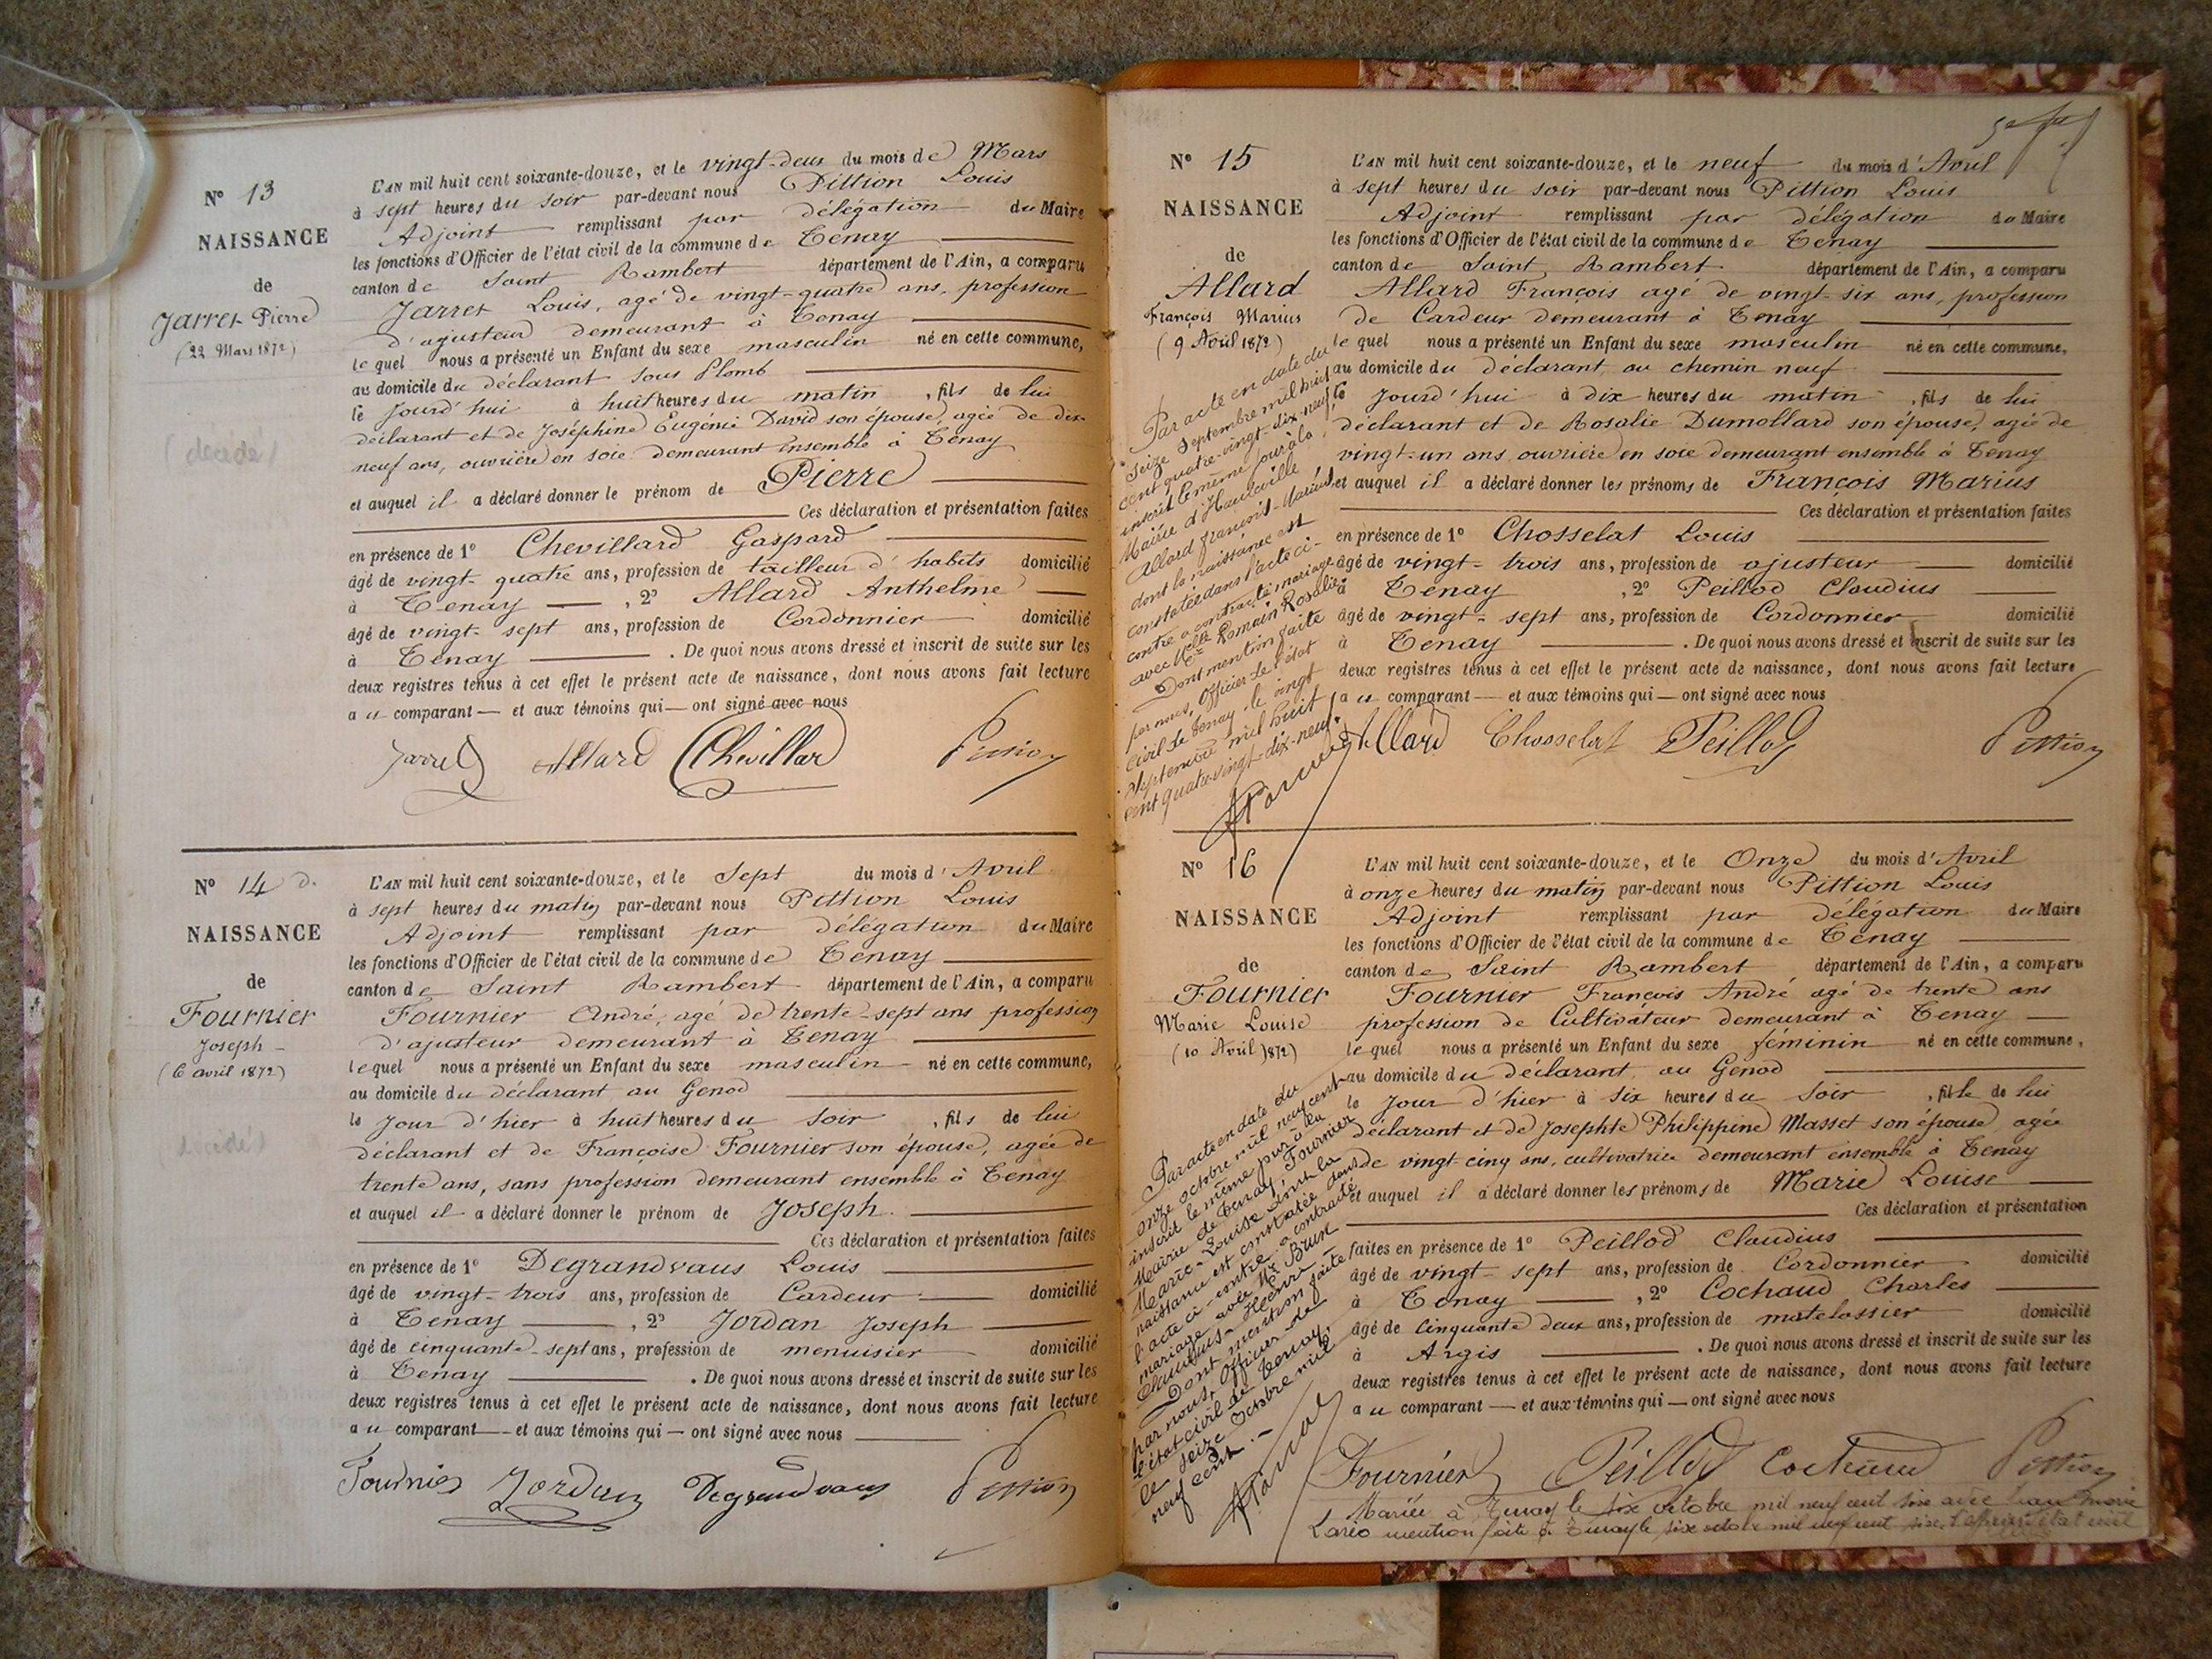 Nº 13
NAISSANCE
de
Jarret Pierre
(22 Mars 1872)
(décédé)
L'AN mil huit cent soixante-douze, et le vingt-deux du mois de Mars
à sept heures du soir par-devant nous Pittion Louis
Adjoint remplissant par délégation du Maire
les fonctions d'Officier de l'état civil de la commune de Tenay
canton de Saint Rambert département de l'Ain, a comparu
Jarret Louis, agé de vingt-quatre ans, profession
d'ajusteur demeurant à Tenay
lequel nous a présenté un Enfant du sexe masculin né en cette commune,
au domicile du déclarant sous Plomb
le jourd'hui à huit heures du matin, fils de lui
déclarant et de Joséphine Eugénie David son épouse, agée de dix
neuf ans, ouvrière en soie demeurant ensemble à Tenay
et auquel il a déclaré donner le prénom de Pierre
Ces déclaration et présentation faites
en présence de 1º Chevillard Gaspard
âgé de vingt-quatre ans, profession de tailleur d'habits domicilié
à Tenay, 2º Allard Anthelme
âgé de vingt-sept ans, profession de Cordonnier domicilié
à Tenay. De quoi nous avons dressé et inscrit de suite sur les
deux registres tenus à cet effet le présent acte de naissance, dont nous avons fait lecture
au comparant — et aux témoins qui — ont signé avec nous
Jarret Allard Chevillar Pittion
Nº 14 D.
NAISSANCE
de
Fournier
Joseph
(6 avril 1872)
(décédé)
L'AN mil huit cent soixante-douze, et le Sept du mois d'Avril
à sept heures du matin par-devant nous Pittion Louis
Adjoint remplissant par délégation du Maire
les fonctions d'Officier de l'état civil de la commune de Tenay
canton de Saint Rambert département de l'Ain, a comparu
Fournier André, agé de trente-sept ans profession
d'ajusteur demeurant à Tenay
lequel nous a présenté un Enfant du sexe masculin né en cette commune,
au domicile du déclarant au Genod
le jour d'hier à huit heures du soir, fils de lui
déclarant et de Françoise Fournier son épouse, agée de
trente ans, sans profession demeurant ensemble à Tenay
et auquel il a déclaré donner le prénom de Joseph.
Ces déclaration et présentation faites
en présence de 1º Degrandvaus Louis
âgé de vingt-trois ans, profession de Cardeur domicilié
à Tenay, 2º Jordan Joseph
âgé de cinquante-sept ans, profession de menuisier domicilié
à Tenay. De quoi nous avons dressé et inscrit de suite sur les
deux registres tenus à cet effet le présent acte de naissance, dont nous avons fait lecture
au comparant — et aux témoins qui — ont signé avec nous
Fournier Jordan Degrandvaus Pittion
Nº 15
NAISSANCE
de
Allard
François Marius
(9 Avril 1872)
Par acte en date du
seize Septembre mil huit
cent quatre-vingt-dix-neuf
inscrit le même jour à la
Mairie d'Hauteville
Allard françois-Marius
dont la naissance est
constatée dans l'acte ci-
contre a contracté mariage
avec Romain Rosalie
Dont mention faite
par nous, Officier de l'état
civil de Tenay le vingt
Septembre mil huit
cent quatre-vingt-dix-neuf.
L'AN mil huit cent soixante-douze, et le neuf du mois d'Avril
à sept heures du soir par-devant nous Pittion Louis
Adjoint remplissant par délégation du Maire
les fonctions d'Officier de l'état civil de la commune de Tenay
canton de Saint Rambert département de l'Ain, a comparu
Allard François agé de vingt-six ans, profession
de Cardeur demeurant à Tenay
lequel nous a présenté un Enfant du sexe masculin né en cette commune,
au domicile du déclarant, au chemin neuf
le jourd'hui à dix heures du matin, fils de lui
déclarant et de Rosalie Dumollard son épouse, agée de
vingt-un ans, ouvrière en soie demeurant ensemble à Tenay
et auquel il a déclaré donner les prénoms de François Marius
Ces déclaration et présentation faites
en présence de 1º Chosselat Louis
âgé de vingt-trois ans, profession de ajusteur domicilié
à Tenay, 2º Peillod Claudius
âgé de vingt-sept ans, profession de Cordonnier domicilié
à Tenay. De quoi nous avons dressé et inscrit de suite sur les
deux registres tenus à cet effet le présent acte de naissance, dont nous avons fait lecture
au comparant — et aux témoins qui — ont signé avec nous
Allard Chosselat Peillod Pittion
Nº 16
NAISSANCE
de
Fournier
Marie Louise
(10 Avril 1872)
Par acte en date du
onze octobre mil neuf cent
inscrit le même jour à la
Mairie de Tenay, Fournier
Marie-Louise dont la
naissance est constatée dans
l'acte ci-contre a contracté
mariage avec Mr Brun
Claudius-Henri.
Dont mention faite
par nous, Officier de
l'état civil de Tenay,
ce seize octobre mil
neuf cent.
L'AN mil huit cent soixante-douze, et le Onze du mois d'Avril
à onze heures du matin par-devant nous Pittion Louis
Adjoint remplissant par délégation du Maire
les fonctions d'Officier de l'état civil de la commune de Tenay
canton de Saint Rambert département de l'Ain, a comparu
Fournier François André agé de trente ans
profession de Cultivateur demeurant à Tenay
lequel nous a présenté un Enfant du sexe féminin né en cette commune,
au domicile du déclarant, au Genod
le jour d'hier à six heures du soir, fille de lui
déclarant et de Josephte Philippine Masset son épouse, agée
de vingt-cinq ans, cultivatrice demeurant ensemble à Tenay
et auquel il a déclaré donner les prénoms de Marie Louise
Ces déclaration et présentation
faites en présence de 1º Peillod Claudius
âgé de vingt-sept ans, profession de Cordonnier domicilié
à Tenay, 2º Cochaud Charles
âgé de Cinquante deux ans, profession de matelassier domicilié
à Argis. De quoi nous avons dressé et inscrit de suite sur les
deux registres tenus à cet effet le présent acte de naissance, dont nous avons fait lecture
au comparant — et aux témoins qui — ont signé avec nous
Fournier Peillod Cochaud Pittion
Mariée à Tenay le six octobre mil neuf cent six avec Jean Marie
Lario mention faite à Tenay le six octobre mil neuf cent six.